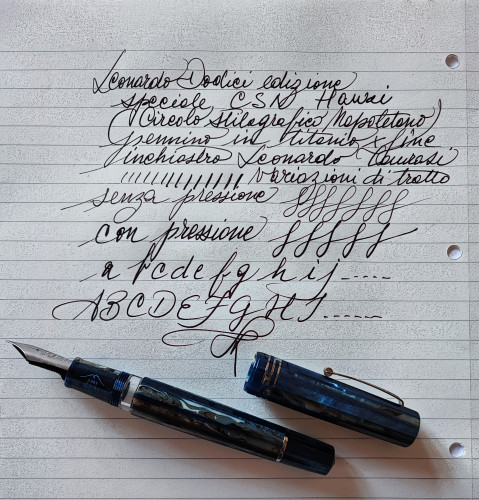 Leonardo Dodici edizione
speciale CSN Hawai
(Circolo Stilografico Napoletano)
pennino in titanio fine
inchiostro Leonardo
variazioni di tratto
senza pressione ffffffff
con pressione fffff
a b c d e f g h i j .....
A B C D E F G H I .....